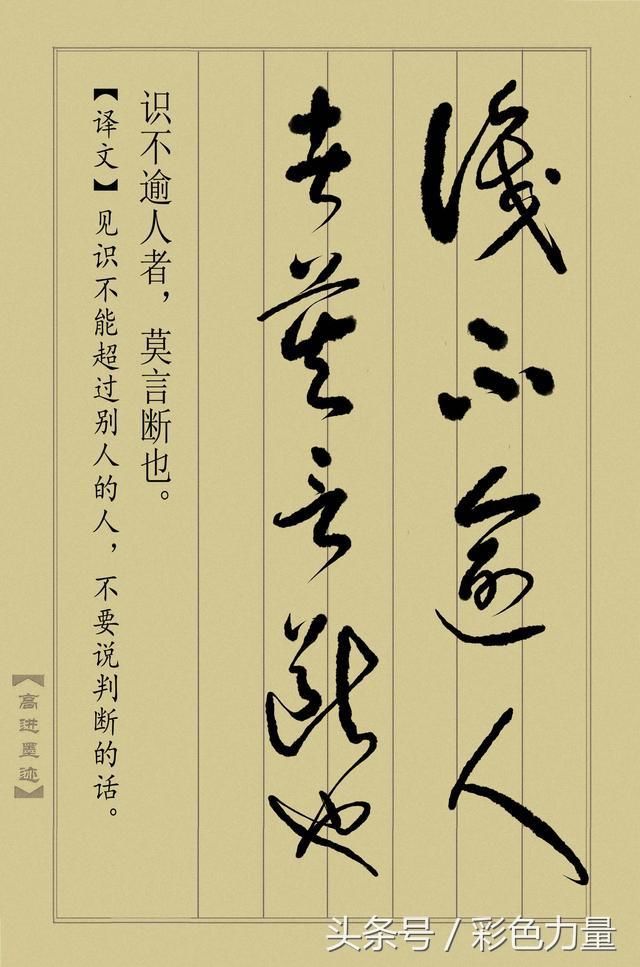 識不逾人
者莫言斷也
识不逾人者，莫言断也。
【译文】见识不能超过别人的人，不要说判断的话。
【高进墨迹】
头条号/彩色力量